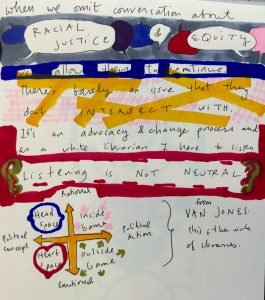 when we omit conversation about
RACIAL JUSTICE & EQUITY
we allow them to continue
There's barely an issue that they
dont INTERSECT with.
It's an advocacy & change process and
as a white librarian I have to listen
LISTENING is NOT NEUTRAL
Rational
Head Space
Inside Game
Political concept
Political Action
Heart Space
Outside Game
Emotional
from
VAN JONES.
this is the work
of libraries.